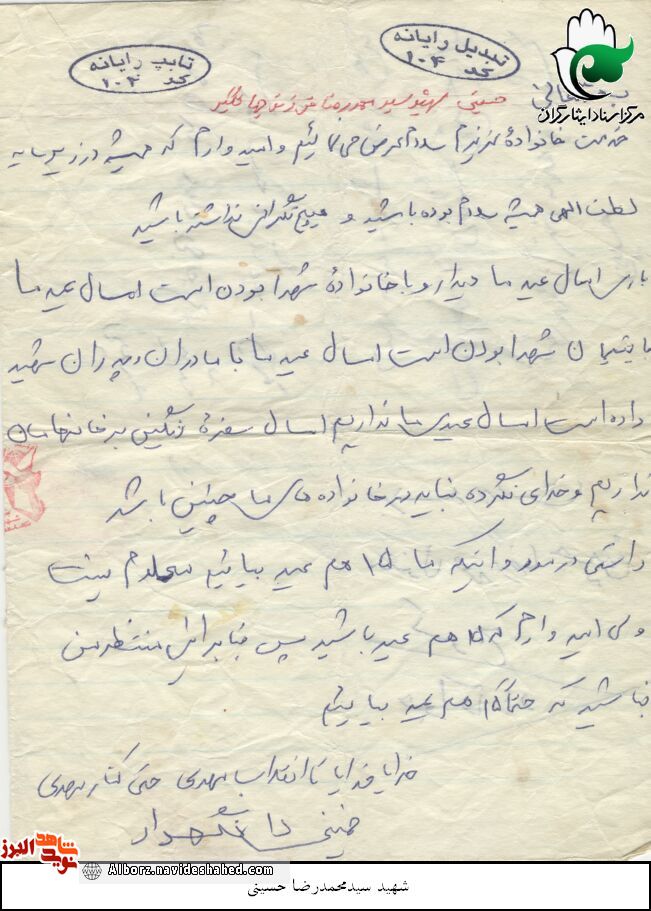 مرکز اسناد ایثارگران
تبدیل رایانه
کد ۱۰۴
تایپ رایانه
کد ۱۰۴
حسینی شهید سید محمدرضا
خدمت خانوادهٔ عزیزم سلام عرض می نمائیم و امید وارم که همیشه در زیر سایه
لطف الهی همیشه سلام بوده باشید و هیچ نگرانی نداشته باشید
امسال عید ما دیدار و با خانوادهٔ شهدا بودن است امسال عید ما
با یتیمان شهدا بودن است امسال عید ما با مادران و پدران شهید
داده است امسال عیدی ما نداریم امسال سفرهٔ رنگینی در خانه‌امان
نداریم و خدای نکرده نباید در خانواده های ما چنین باشد
راستی در مورد اینکه ما ۱۵ هم عید بیائیم معلوم نیست
ولی امید وارم که ۱۵ هم عید باشید پس بنابراین منتظر من
نباشید که حتماً ۱۵ هم عید بیائیم
خدایا خدایا تا انقلاب مهدی حتی کنار مهدی
خمینی را نگهدار
شاهد نوید البرز
Alborz.navideshahed.com
شهید سیدمحمدرضا حسینی